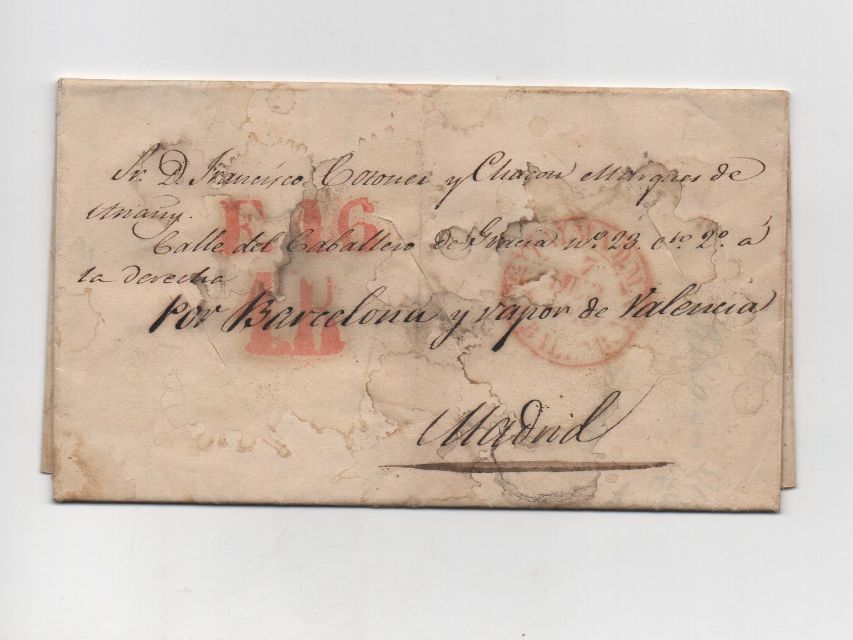 Sr. D. Francisco Cotoner y Chacon Marques de
Ariañy.
Calle del Caballero de Gracia nº. 23. cto 2º. á
la derecha
Por Barcelona y vapor de Valencia
Madrid